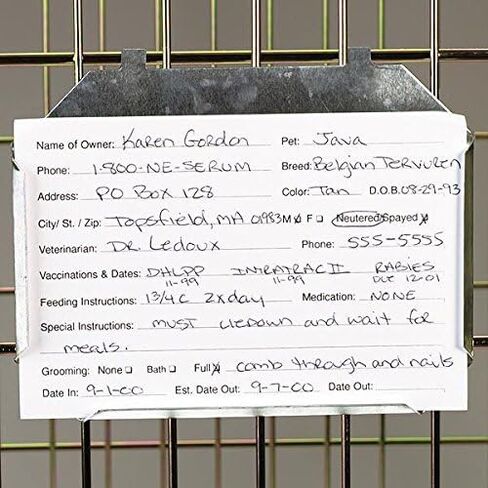 Name of Owner: Karen Gordon Pet: Java
Phone: 1-800-NE-SERUM Breed: Belgian Tervuren
Address: PO Box 128 Color: Tan D.O.B. 08-29-93
City/ St. / Zip: Topsfield, MA 01983 M ☒ F ☐ Neutered/Spayed ☒
Veterinarian: DR. Ledoux Phone: 555-5555
Vaccinations & Dates: DHLPP INTRATRAC II RABIES
11-99 11-99 DUE 12-01
Feeding Instructions: 1 3/4 C 2x day Medication: NONE
Special Instructions: must liedown and wait for
meals.
Grooming: None ☐ Bath ☐ Full ☒ comb through and nails
Date In: 9-1-00 Est. Date Out: 9-7-00 Date Out: